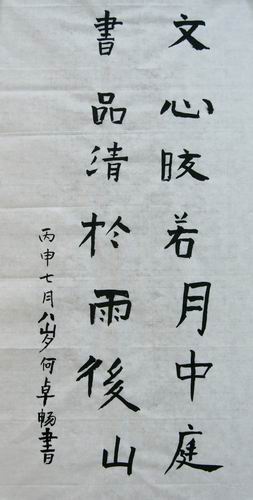 文心晈若月中庭
書品清於雨後山
丙申七月八岁何卓畅書